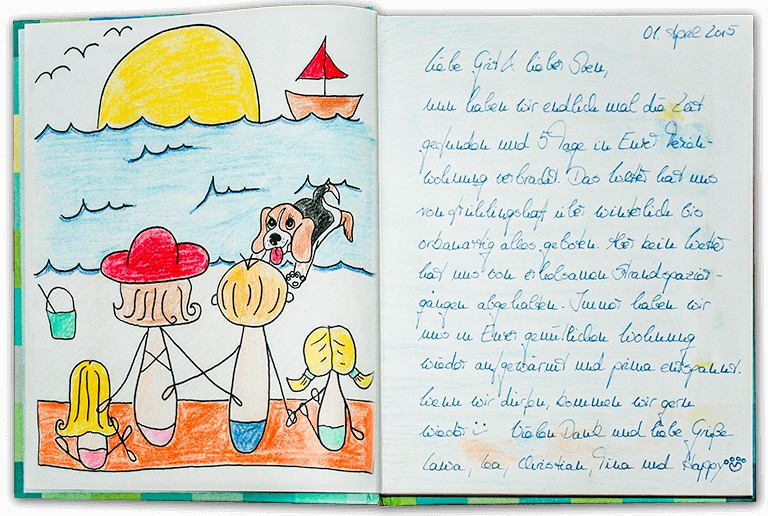 01. April 2015
Liebe Grit & lieber Sven,
nun haben wir endlich mal die Zeit
gefunden und 5 Tage in Eurer Ferien-
wohnung verbracht. Das Wetter hat uns
von frühlingshaft über winterlich bis
orkanartig alles geboten. Aber kein Wetter
hat uns von erholsamen Strandspazier-
gängen abgehalten. Immer haben wir
uns in Eurer gemütlichen Wohnung
wieder aufgewärmt und prima entspannt.
Wenn wir dürfen, kommen wir gern
wieder Vielen Dank und liebe Grüße
Lea, Christian, Tina und Happy